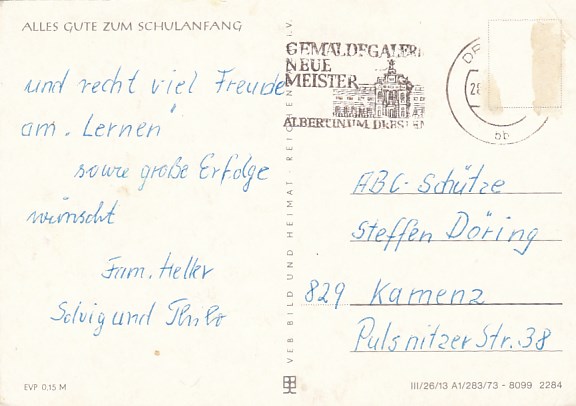 ALLES GUTE ZUM SCHULANFANG
und recht viel Freude
am "Lernen"
sowie große Erfolge
wünscht
Fam. Heller
Solvig und Thilo
EVP 0,15 M
VEB BILD UND HEIMAT · REICHENBACH I.V.
GEMÄLDEGALERIE
NEUE
MEISTER
ALBERTINUM DRESDEN
DR
28
bb
ABC-Schütze
Steffen Döring
829 Kamenz
Pulsnitzer Str. 38
III/26/13 A1/283/73 - 8099 2284